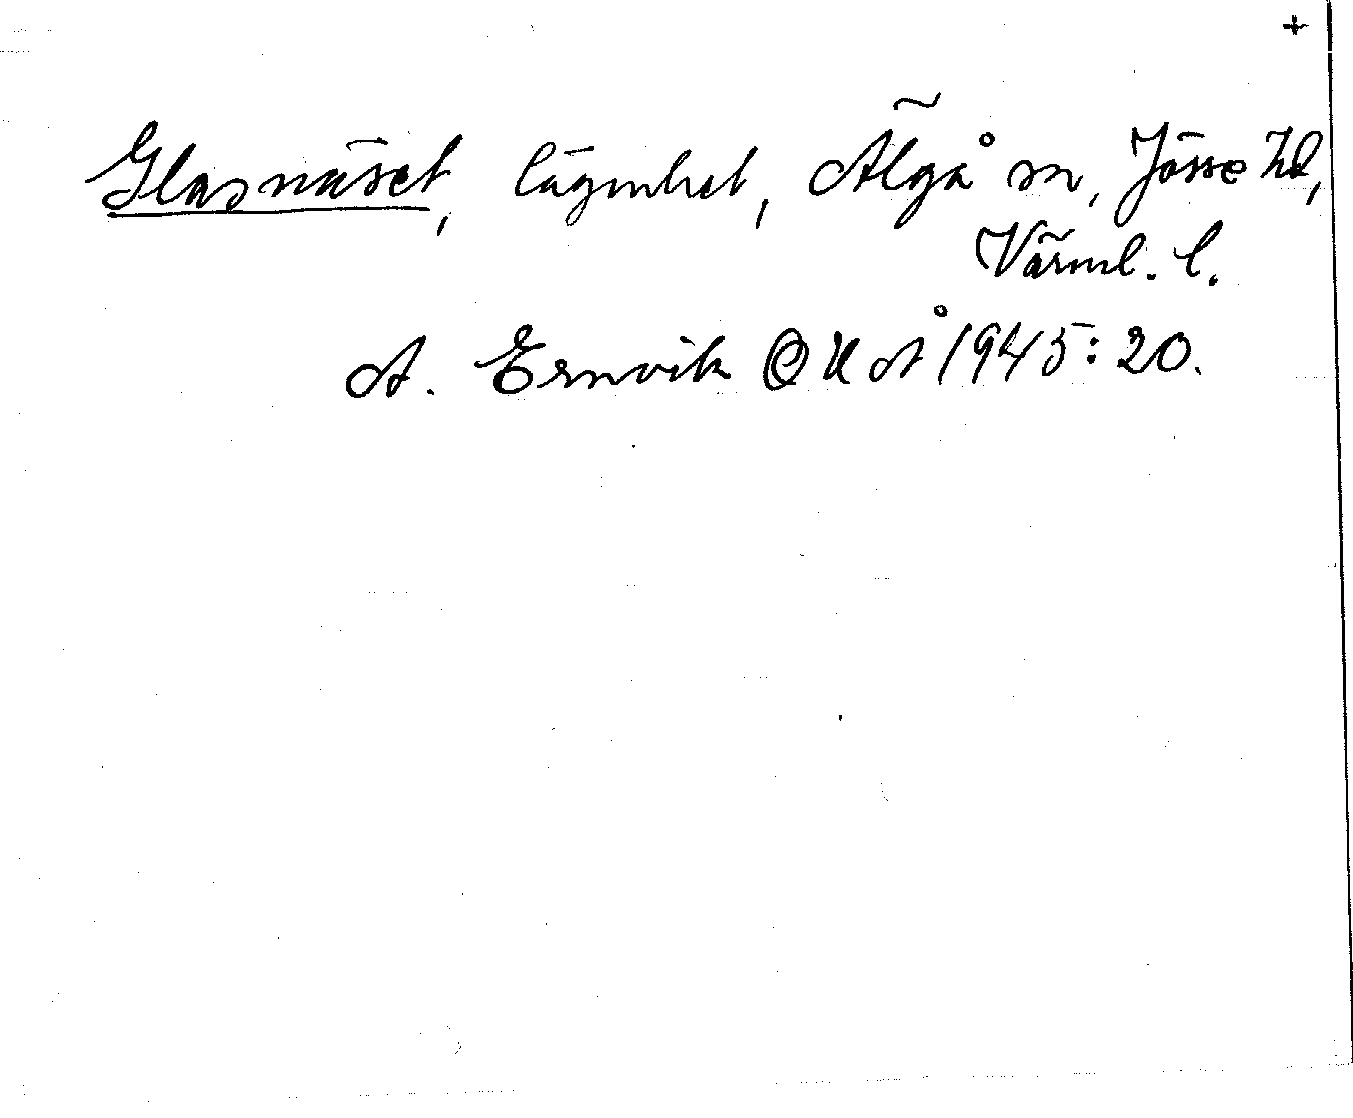 +
Glasnäset, lägenhet, Älgå sn, Jösse hd,
Värml. l.
A. Ernvik OUÅ 1945:20.